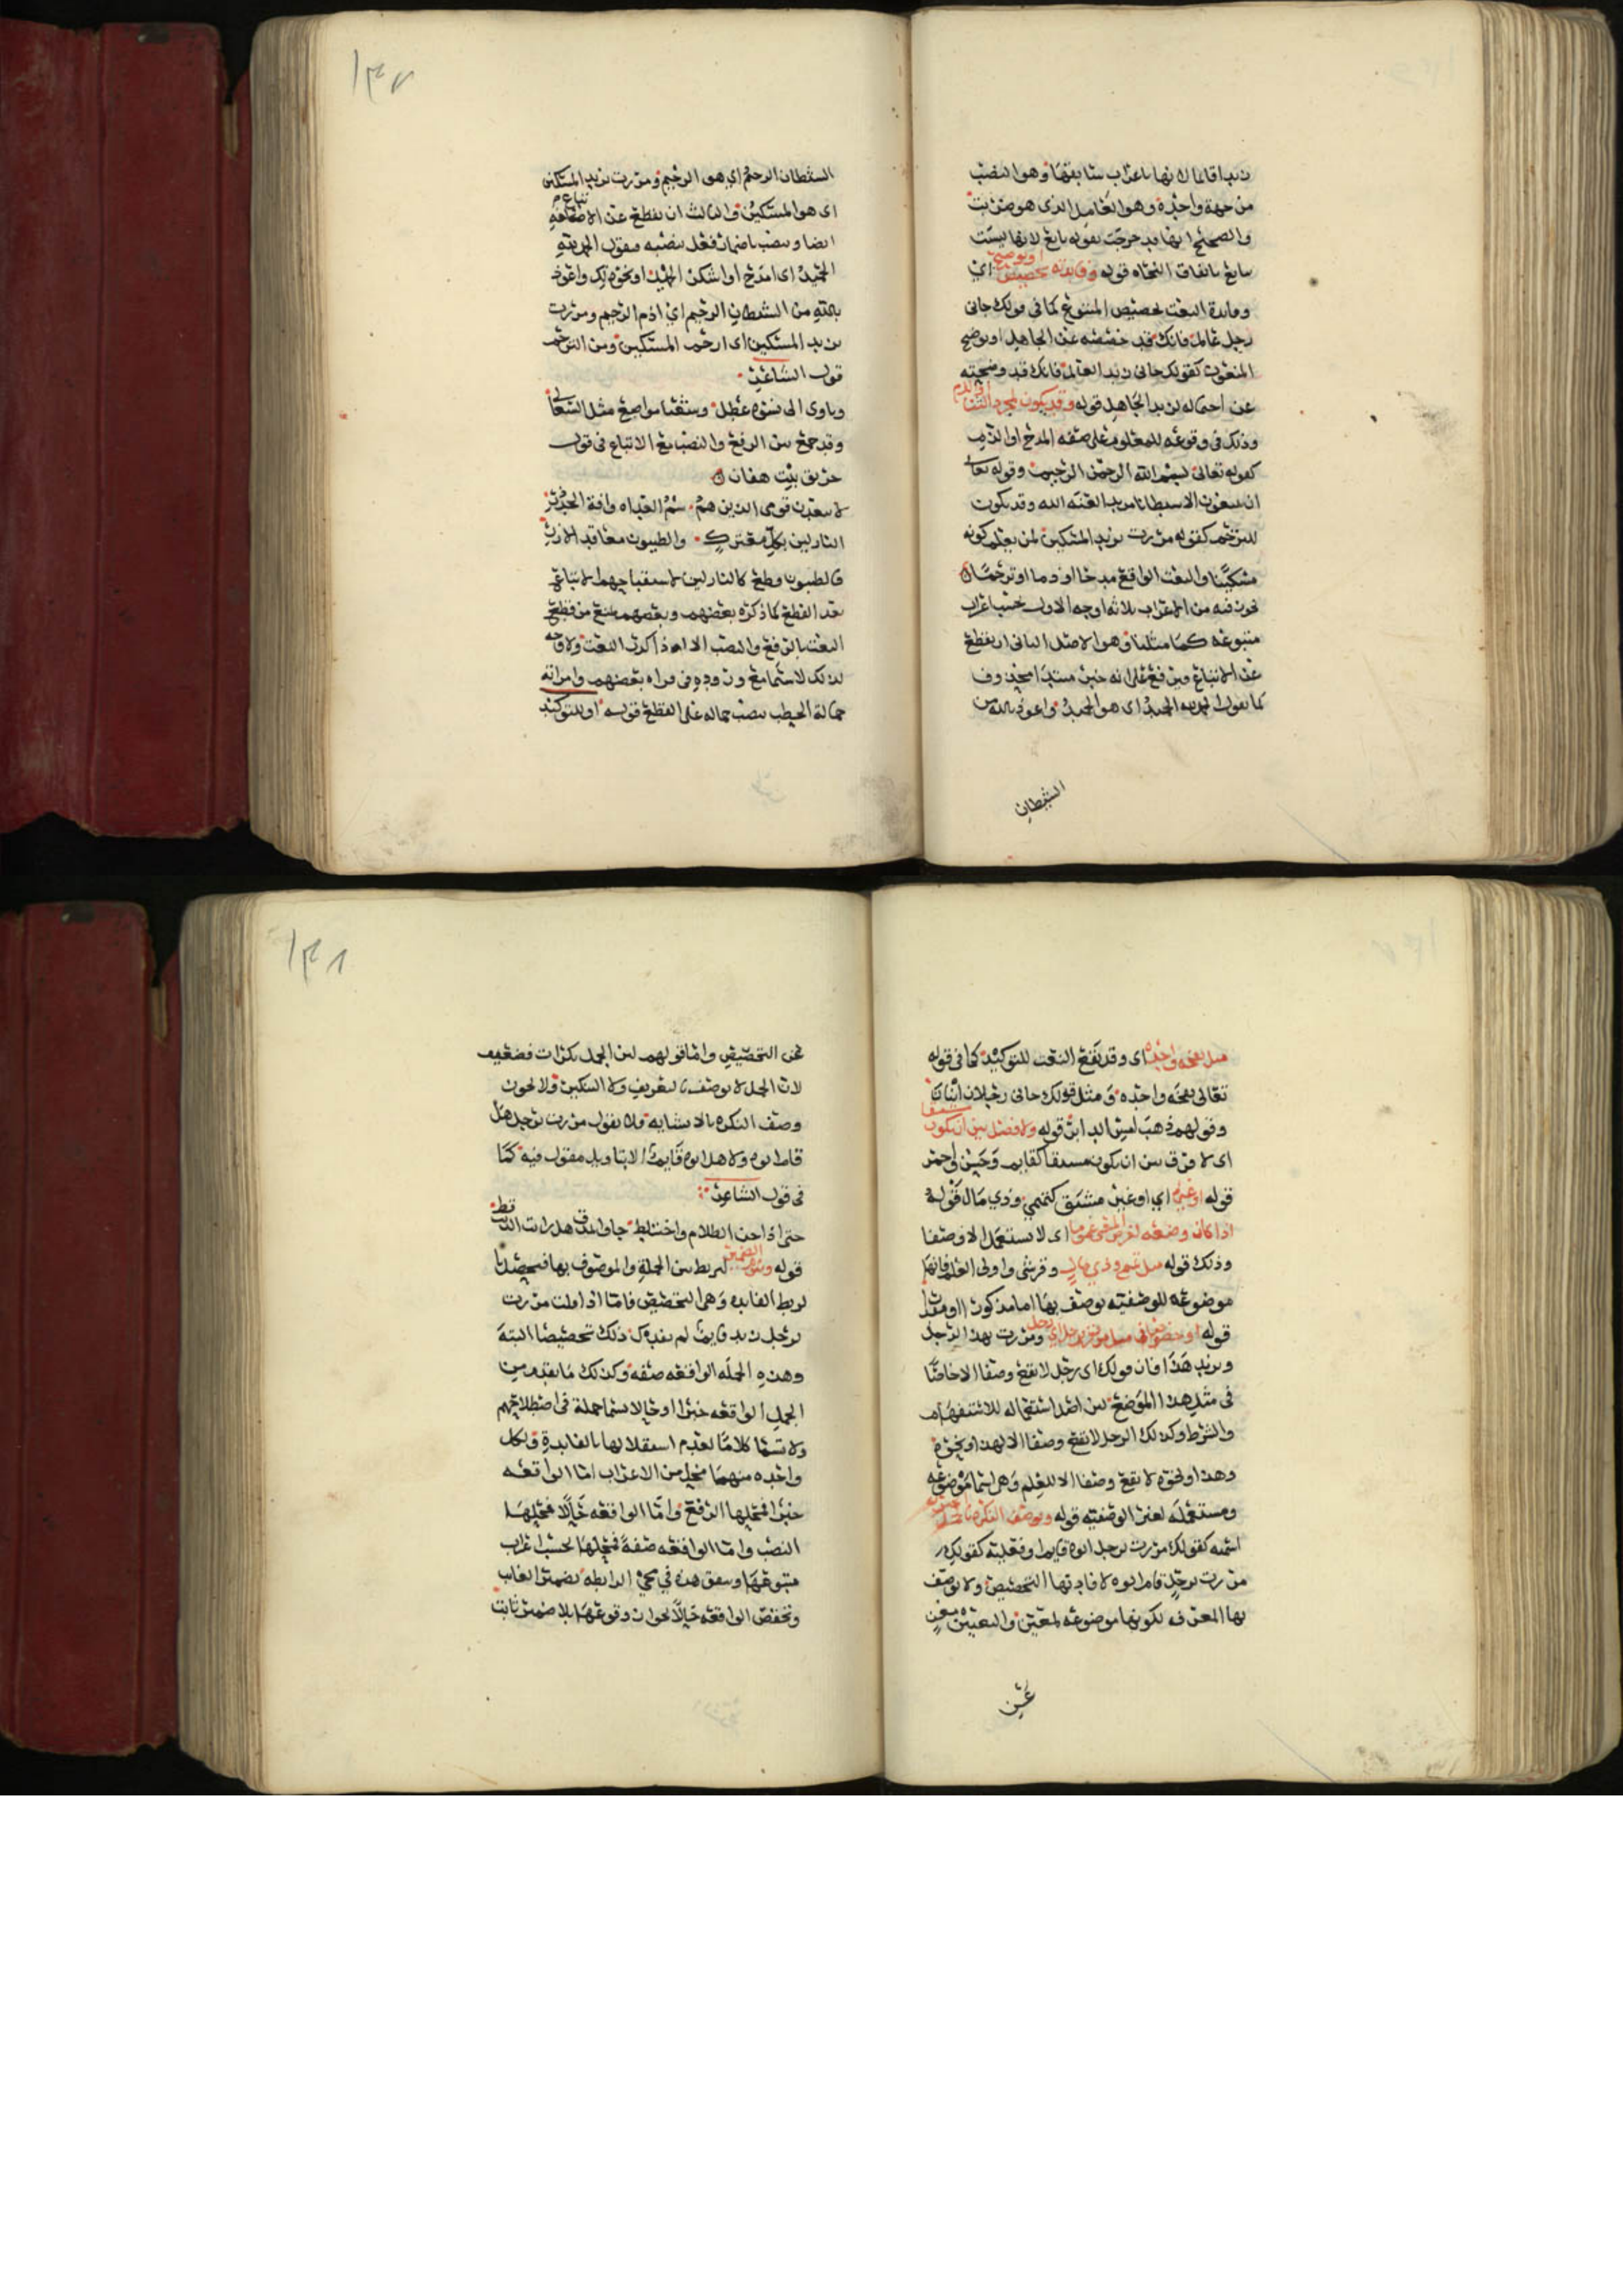 زيدا قايما لانها باعراب سابقها وهو النصب
من جهة واحدة وهو العامل الذي هو ضربت
والصحيح انها قد خرجت بقوله تابع لانها ليست
بتابع باتفاق النحاه قوله وفايدته تخصيص او توضيح اي
وفايدة النعت تخصيص المتبوع كما في قولك جاني
رجل عالم فانك قد خصصته عن الجاهل او توضيح
المنعوت كقولك جاني زيد العالم فانك قد وضحته
عن احتماله لزيد الجاهل قوله وقد يكون لمجرد الثنا او الذم
وذلك في وقوعه للمعلوم على صفه المدح او الذم
كقوله تعالى بسم الله الرحمن الرحيم وقوله تعالى
ان يدعون الا شيطانا مريدا لعنه الله وقد يكون
للترحم كقوله مررت بزيد المسكين لمن يعلم كونه
مسكينا والنعت الواقع مدحا او ذما او ترحما
يجوز فيه من الاعراب ثلاثه اوجه الاول بحسب اعراب
متبوعه كما مثلنا وهو الاصل الثاني ان يقطع
عن الاتباع ويرفع على انه خبر مبتدا محذوف
كما تقول الحمد لله الحميد اي هو الحميد واعوذ بالله من
الشيطان
١٣٧
الشيطان الرجيم اي هو الرجيم ومررت بزيد المسكين
اي هو المسكين والثالث ان يقطع عن الاتباع
ايضا وينصب باضمار فعل ينصبه فتقول الحمد لله
الحميد اي امدح او اشكر الحميد او نحو ذلك واعوذ
بالله من الشيطان الرجيم اي اذم الرجيم ومررت
بزيد المسكين اي ارحم المسكين ومن الترحم
قول الشاعر
وياوي الى نسوة عطل وشعثا مراضيع مثل السعالي
وقد جمع بين الرفع والنصب مع الاتباع في قول
خرنق بنت هفان
لا يبعدن قومي الذين هم سم العداه وافة الجزر
النازلين بكل معترك والطيبون معاقد الازر
فالطيبون قطع كالنازلين لاستقباحهم الاتباع
بعد القطع كما ذكره بعضهم وبعضهم يمنع من قطع
النعت بالرفع والنصب الا اذا كرر النعت ولا وجه
لذلك لا سيما مع وروده في قراه بعضهم وامراته
حمالة الحطب بنصب حماله على القطع قوله او للتوكيد
مثل نفخه واحده اي وقد يقع النعت للتوكيد كما في قوله
تعالى نفخه واحده ومثل قولك جاني رجلان اثنان
وقولهم ذهب امس الدابر قوله ولا فصل بين ان يكون مشتقا
اي لا فرق بين ان يكون مشتقا كقايم وحسن واحمر
قوله او غيره اي او غير مشتق كتميمي وذي مال قوله
اذا كان وضعه لغرض المعنى عموما اي لا يستعمل الا وصفا
وذلك قوله مثل تميمي وذي مال وقرشي واولي العلم فانها
موضوعه للوصفيه يوصف بها اما مذكورا او مقدرا
قوله او خصوصا في مثل مررت برجل اي رجل ومررت بهذا الرجل
وبزيد هذا فان قولك اي رجل لا يقع وصفا الا خاصا
في مثل هذا الموضع لان اصل استعماله للاستفهام
والشرط وكذلك الرجل لا يقع وصفا الا لهذا ونحوه
وهذا ونحوه لا يقع وصفا الا للعلم وهي اسما موضوعه
ومستعمله لغير الوصفيه قوله وتوصف النكره بالجمل الخبريه
اسميه كقولك مررت برجل ابوه قايم او فعليه كقولك
مررت برجل قام ابوه لافادتها التخصيص ولا توصف
بها المعرفه لكونها موضوعه لمعين والتعيين مغن
عن
١٣٨
عن التخصيص واما قولهم لان الجمل نكرات فضعيف
لان الجمل لا توصف بالتعريف ولا التنكير ولا يجوز
وصف النكره بالانشاييه فلا تقول مررت برجل هل
قام ابوه ولا هل ابوه قايم الا بتاويل مقول فيه كما
في قول الشاعر
حتى اذا جن الظلام واختلط جاوا بمذق هل رايت الذيب قط
قوله ويلزم الضمير ليربط بين الجملة والموصوف بها فيحصل
بالربط الفايده وهي التخصيص فاما اذا قلت مررت
برجل زيد قايم لم يفدك ذلك تخصيصا البته
وهذه الجمله الواقعه صفه وكذلك ما تقدم من
الجمل الواقعه خبرا او حالا تسما جملة في اصطلاحهم
ولا تسما كلاما لعدم استقلالها بالفايدة ولكل
واحده منهما محل من الاعراب اما الواقعه
خبرا فمحلها الرفع واما الواقعه حالا فمحلها
النصب واما الواقعه صفة فمحلها بحسب اعراب
متبوعها ويتفق هذه في مجي الرابطه بضمير الغايب
وتختص الواقعه حالا بجواز وقوعها بلا ضمير ثابت